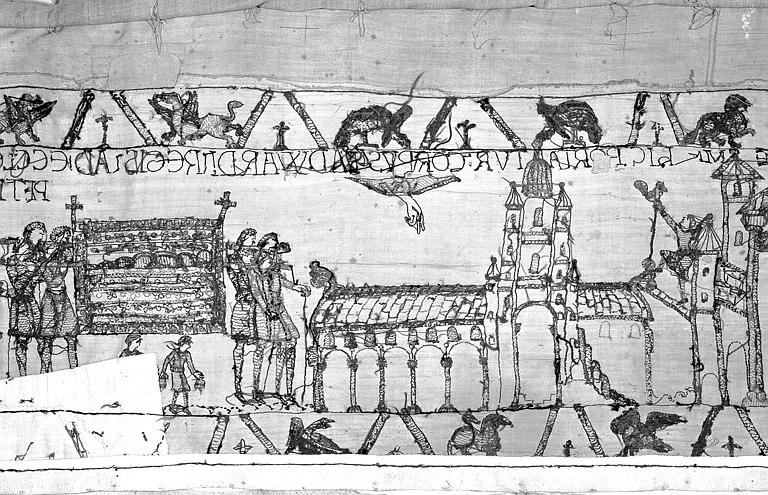 HIC PORTATVR : CORPVS : EADWARDI : REGIS : AD : ECCLE
PETRI